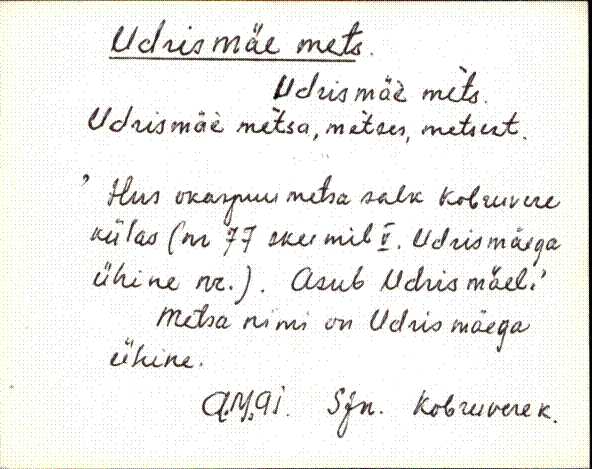 Udrismäe mets.
Udrismäè mèts.
Udrismäè mètsa, mètses, metsest.
' Ilus okaspuu metsa salk Kobruvere
külas (nr 77 skeemil V. Udrismäega
ühine nr.). Asub Udrismäel.'
Metsa nimi on Udrismäega
ühine.
Sjn. Kobruvere k.